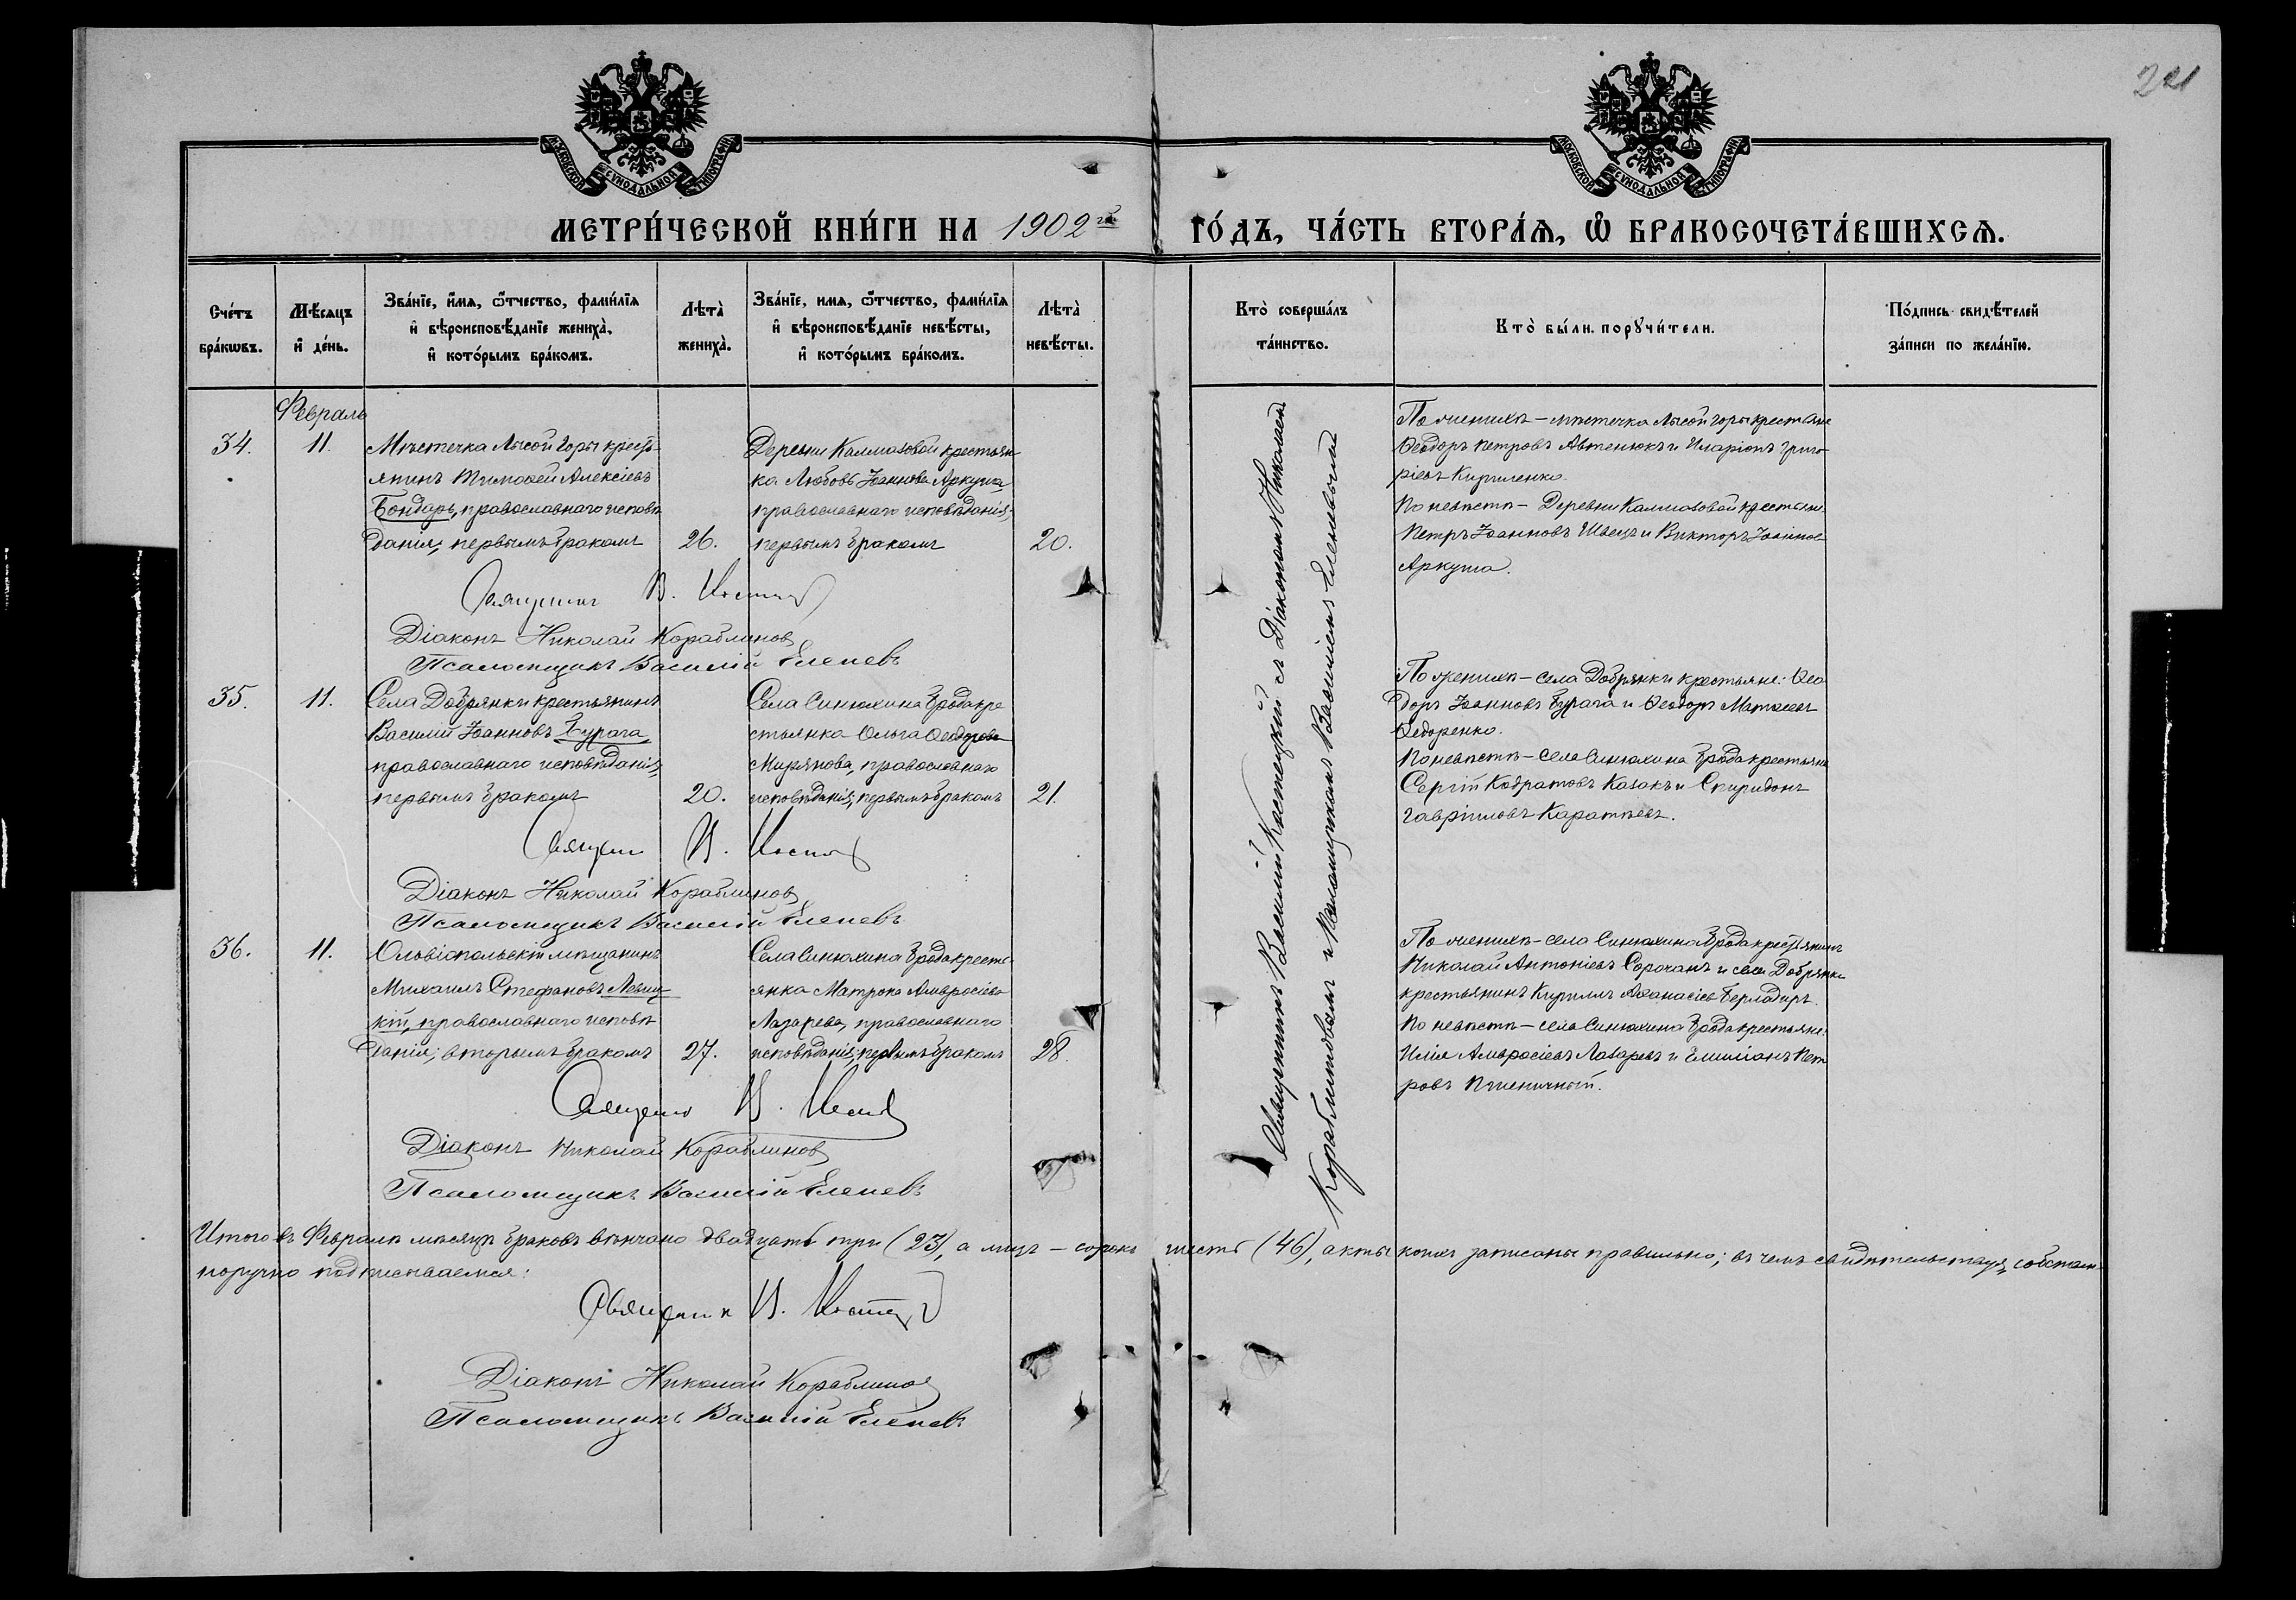 221
МОСКОВСКОЙ СѴНОДАЛЬНОЙ ТИПОГРАФІИ
МОСКОВСКОЙ СѴНОДАЛЬНОЙ ТИПОГРАФІИ
МЕТРИ́ЧЕСКОЙ КНИ́ГИ НА 1902й ГО́ДЪ, ЧА́СТЬ ВТОРА́Я, Ѽ БРАКОСОЧЕТА́ВШИХСЯ.
Сче́тъ
бра́кѡвъ.
Мѣ́сяцъ
и҆ де́нь.
Зва́ніе, и҆́мя, ѻ҆́тчество, фами́лія
и҆ вѣроисповѣ́даніе жениха̀,
и҆ кото́рымъ бра́комъ.
Лѣта̀
жениха̀.
Зва́ніе, имя, ѻ҆́тчество, фами́лія
и҆ вѣроисповѣ́даніе невѣ́сты,
и҆ кото́рымъ бра́комъ.
Лѣта̀
невѣ́сты.
Кто̀ соверша́лъ
та́инство.
Кто̀ бы́ли порꙋчи́тели.
По́дпись свидѣ́телей
за́писи по жела́нію.
Февраль
34.
11.
Мѣстечка Лысой Горы кресть-
янинъ Тимоѳей Алексіевъ
Бондарь, православнаго исповѣ
данія, первымъ бракомъ
26.
Деревни Калмазовой крестьян
ка Любовь Іоаннова Аркуша
православнаго исповѣданія,
первымъ бракомъ
20.
Священникъ Василій Костецкій съ Діакономъ Николаемъ
Кораблиновымъ и Псаломщикомъ Василіемъ Еленевымъ
По женихѣ – мѣстечка Лысой горы крестьяне
Ѳеодоръ Петровъ Автенюкъ и Иларіонъ Григо-
ріевъ Кириленко.
По невѣстѣ – Деревни Калмазовой крестьяне
Петръ Іоанновъ Швецъ и Викторъ Іоаннов
Аркуша.
Священникъ В. Костецкій
Діаконъ Николай Кораблиновъ
Псаломщикъ Василій Еленевъ
35.
11.
Села Добрянки крестьянинъ
Василій Іоанновъ Бурага
православнаго исповѣданія,
первымъ бракомъ
20.
Села Синюхина Брода кре
стьянка Ольга Ѳеодорова
Мирянова, православнаго
исповѣданія, первымъ бракомъ
21.
По женихѣ – села Добрянки крестьяне: Ѳео
доръ Іоанновъ Бурага и Ѳеодоръ Матѳеевъ
Ѳедоренко.
По невѣстѣ – села Синюхина Брода крестьяне
Сергій Кодратовъ Казакъ и Спиридонъ
Гавріиловъ Каратѣевъ.
Священникъ В. Костецкій
Діаконъ Николай Кораблиновъ
Псаломщикъ Василій Еленевъ
36.
11.
Ольвіопольскій мѣщанинъ
Михаилъ Стефановъ Левиц
кій, православнаго исповѣ
данія; вторымъ бракомъ
27.
Села Синюхина Брода кресть
янка Матрона Амвросіева
Лазарева, православнаго
исповѣданія; первымъ бракомъ
28.
По женихѣ – села Синюхина Брода крестьянинъ
Николай Антоніевъ Сорочанъ и села Добрянки
крестьянинъ Кириллъ Аѳанасіевъ Берладиръ.
По невѣстѣ – села Синюхина Брода крестьяне:
Илія Амвросіевъ Лазаревъ и Емиліанъ Пет
ровъ Пшеничный.
Священникъ В. Костецкій
Діаконъ Николай Кораблиновъ
Псаломщикъ Василій Еленевъ
Итого въ Февралѣ мѣсяцѣ браковъ вѣнчано двадцать три (23), а лицъ – сорокъ шесть (46), акты коихъ записаны правильно; въ чемъ свидѣтельствуя, собствен-
норучно подписываемся:
Священникъ В. Костецкій
Діаконъ Николай Кораблиновъ
Псаломщикъ Василій Еленевъ